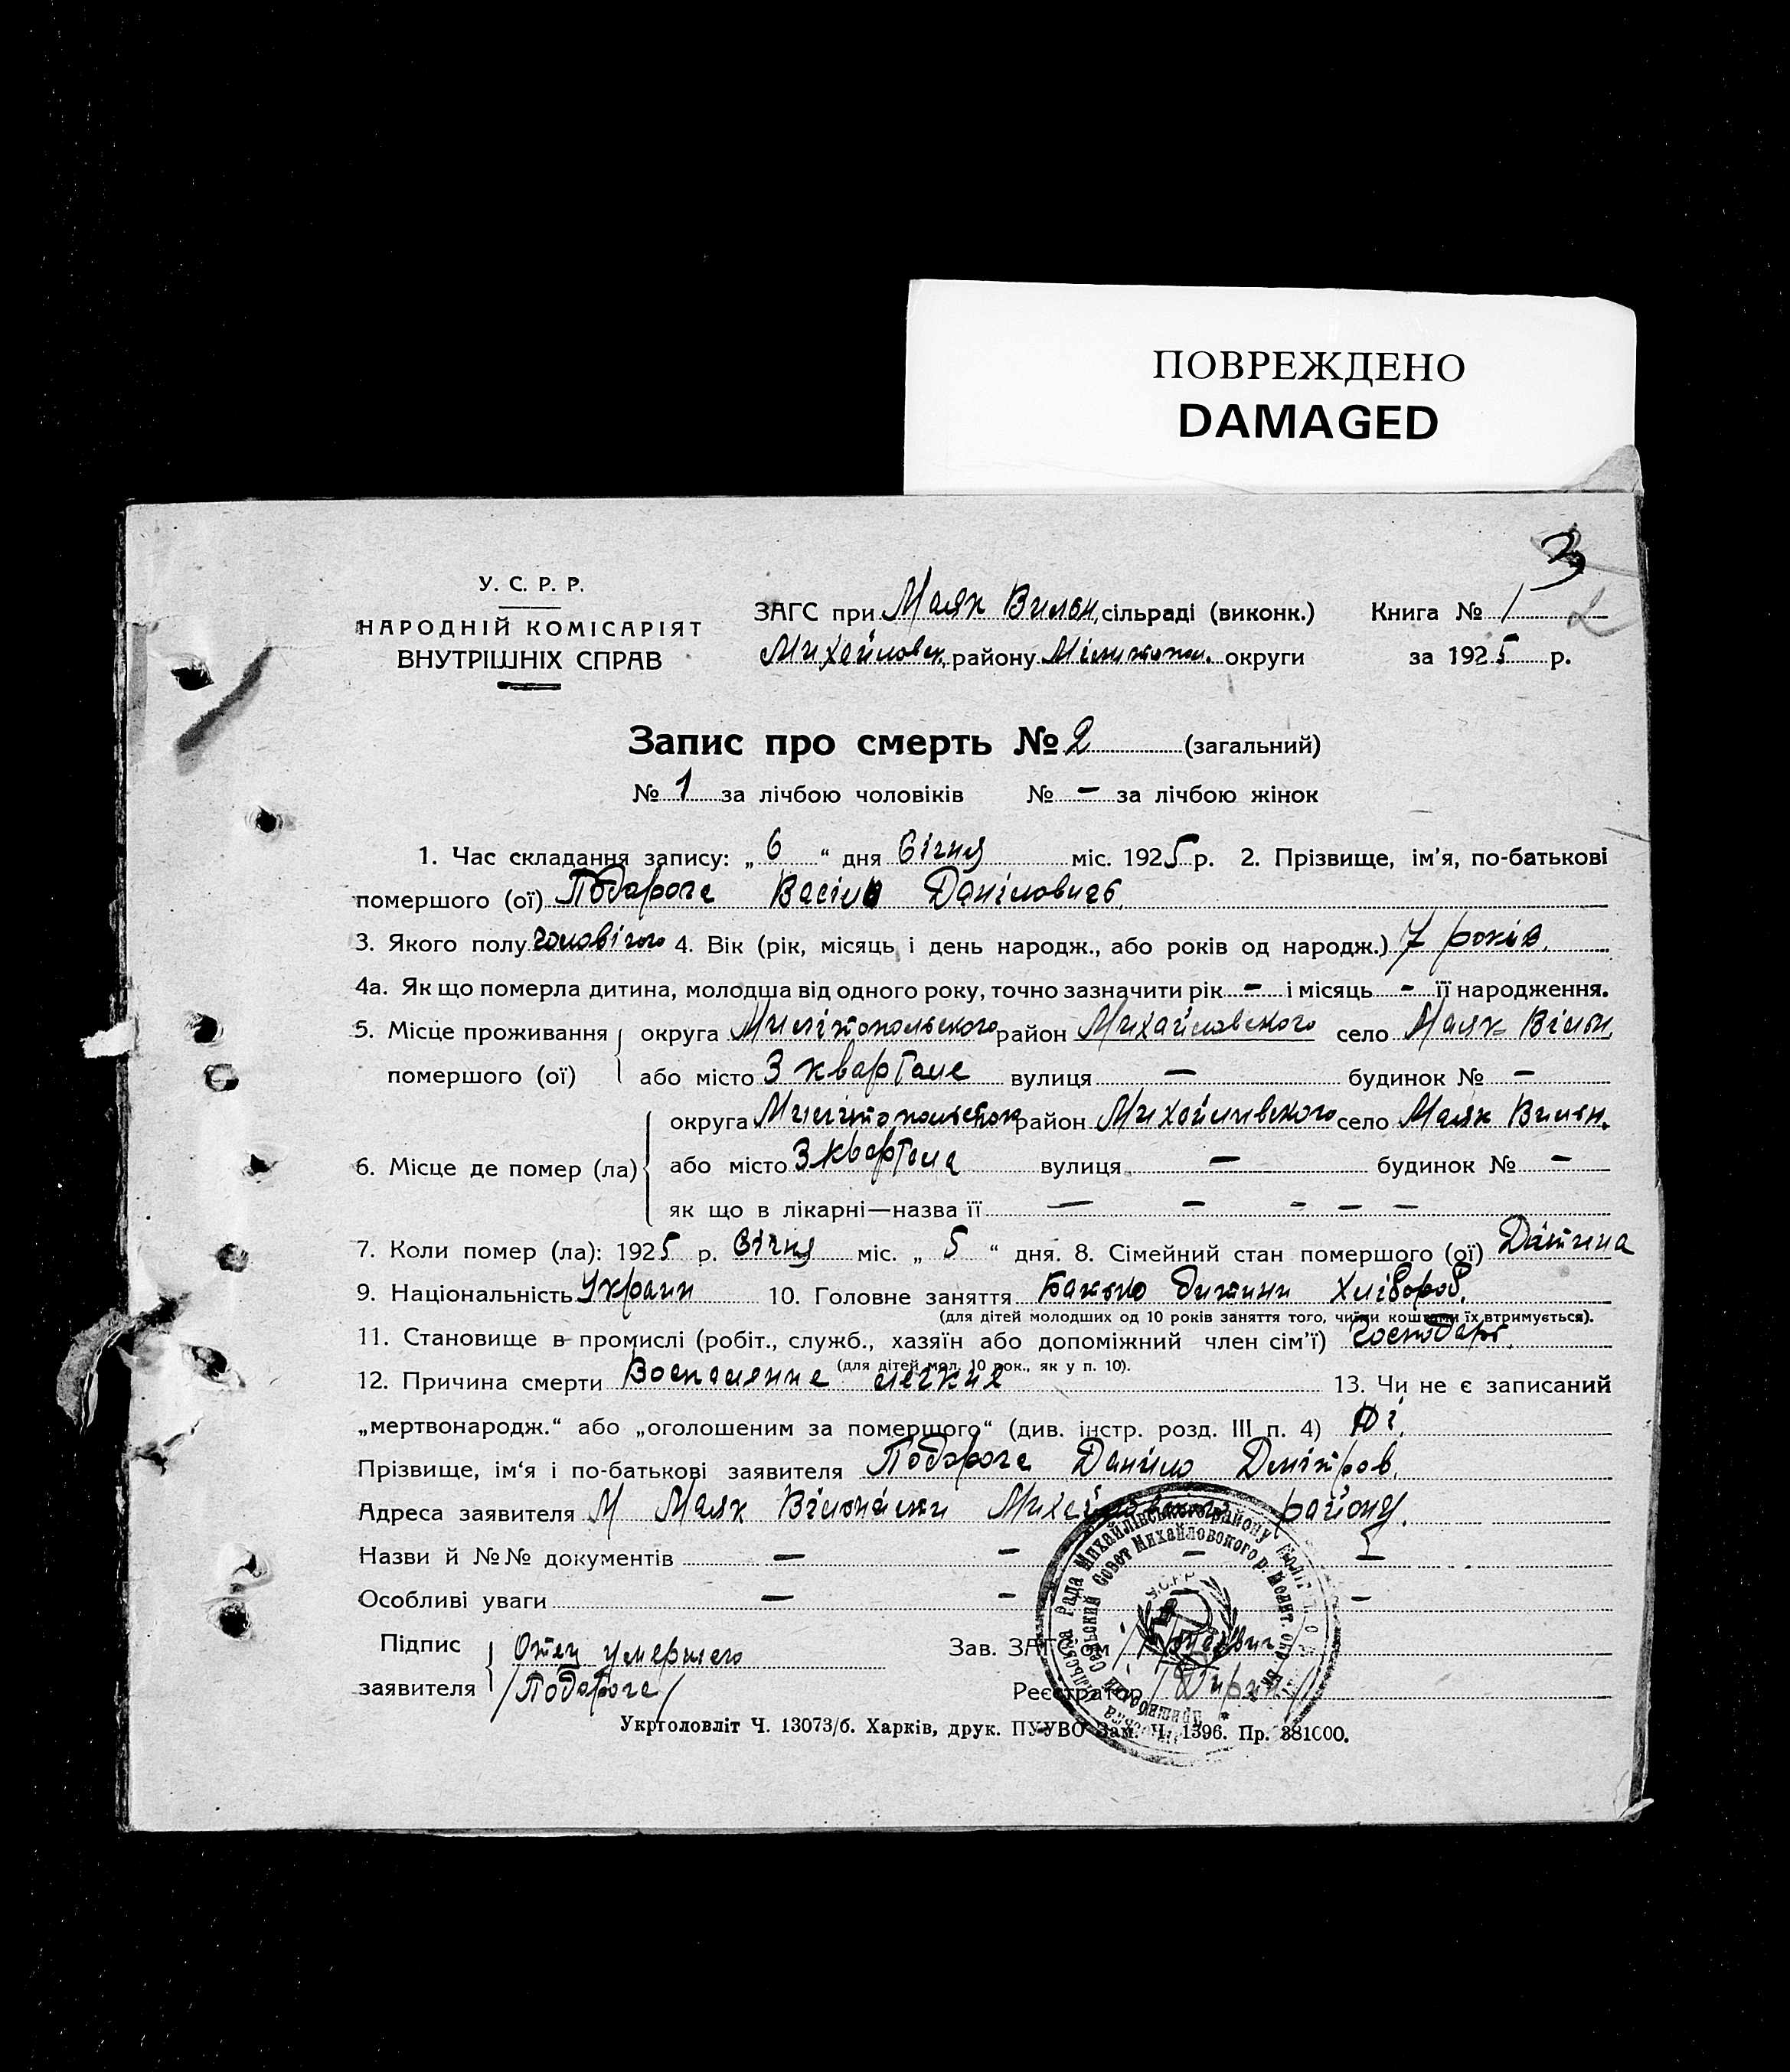 ПОВРЕЖДЕНО
DAMAGED
3
2
У. С. Р. Р.
НАРОДНІЙ КОМІСАРІЯТ
ВНУТРІШНІХ СПРАВ
ЗАГС при Маяк Вильн, сільраді (виконк.) Книга № 1
Михайловск, району округи за 1925 р.
Запис про смерть № 2 (загальний)
№ 1 за лічбою чоловіків № – за лічбою жінок
1. Час складання запису: „ 6 “ дня Січня міс. 1925 р. 2. Прізвище, ім'я, по-батькові
помершого (ої) Подорога Васіль Данілович.
3. Якого полу чоловічого 4. Вік (рік, місяць і день народж., або років од народж.) 7 років.
4а. Як що померла дитина, молодша від одного року, точно зазначити рік – і місяць – її народження.
5. Місце проживання округа Милітопольского район Михайловского село Маяк Вільн,
помершого (ої) або місто 3 квартале вулиця — будинок № –
округа район Михайливского село Маяк Вильн.
6. Місце де помер (ла) або місто 3 квартала вулиця – будинок № –
як що в лікарні—назва її — – – – –
7. Коли помер (ла): 1925 р. Січня міс. „ 5 “ дня. 8. Сімейний стан помершого (ої) Дитина
9. Національність Украин 10. Головне заняття Батько дитини Хлібороб.
(для дітей молодших од 10 років заняття того, чиїми коштами їх втримується).
11. Становище в промислі (робіт., служб., хазяїн або допоміжний член сім'ї) Господарь.
(для дітей мол. 10 рок., як у п. 10).
12. Причина смерти Воспаление легкия 13. Чи не є записаний
„мертвонародж.“ або „оголошеним за помершого“ (див. інстр. розд. III п. 4) Ні.
Прізвище, ім'я і по-батькові заявителя Подорога Данило Дмітров.
Адреса заявителя М Маяк Михайловского району.
Назви й №№ документів — – – –
Особливі уваги — – –
Підпис Отец умершего Зав. ЗАГС'ом
заявителя /Подорога/ Реєстратор
Укрголовліт Ч. 13073/б. Харків, друк. ПУУВО Зам. Ч. 1396. Пр. 381000.
Рада Михайлівського району
Сельский Совет Михайловского р. Мелит. окр.
У.С.Р.Р.